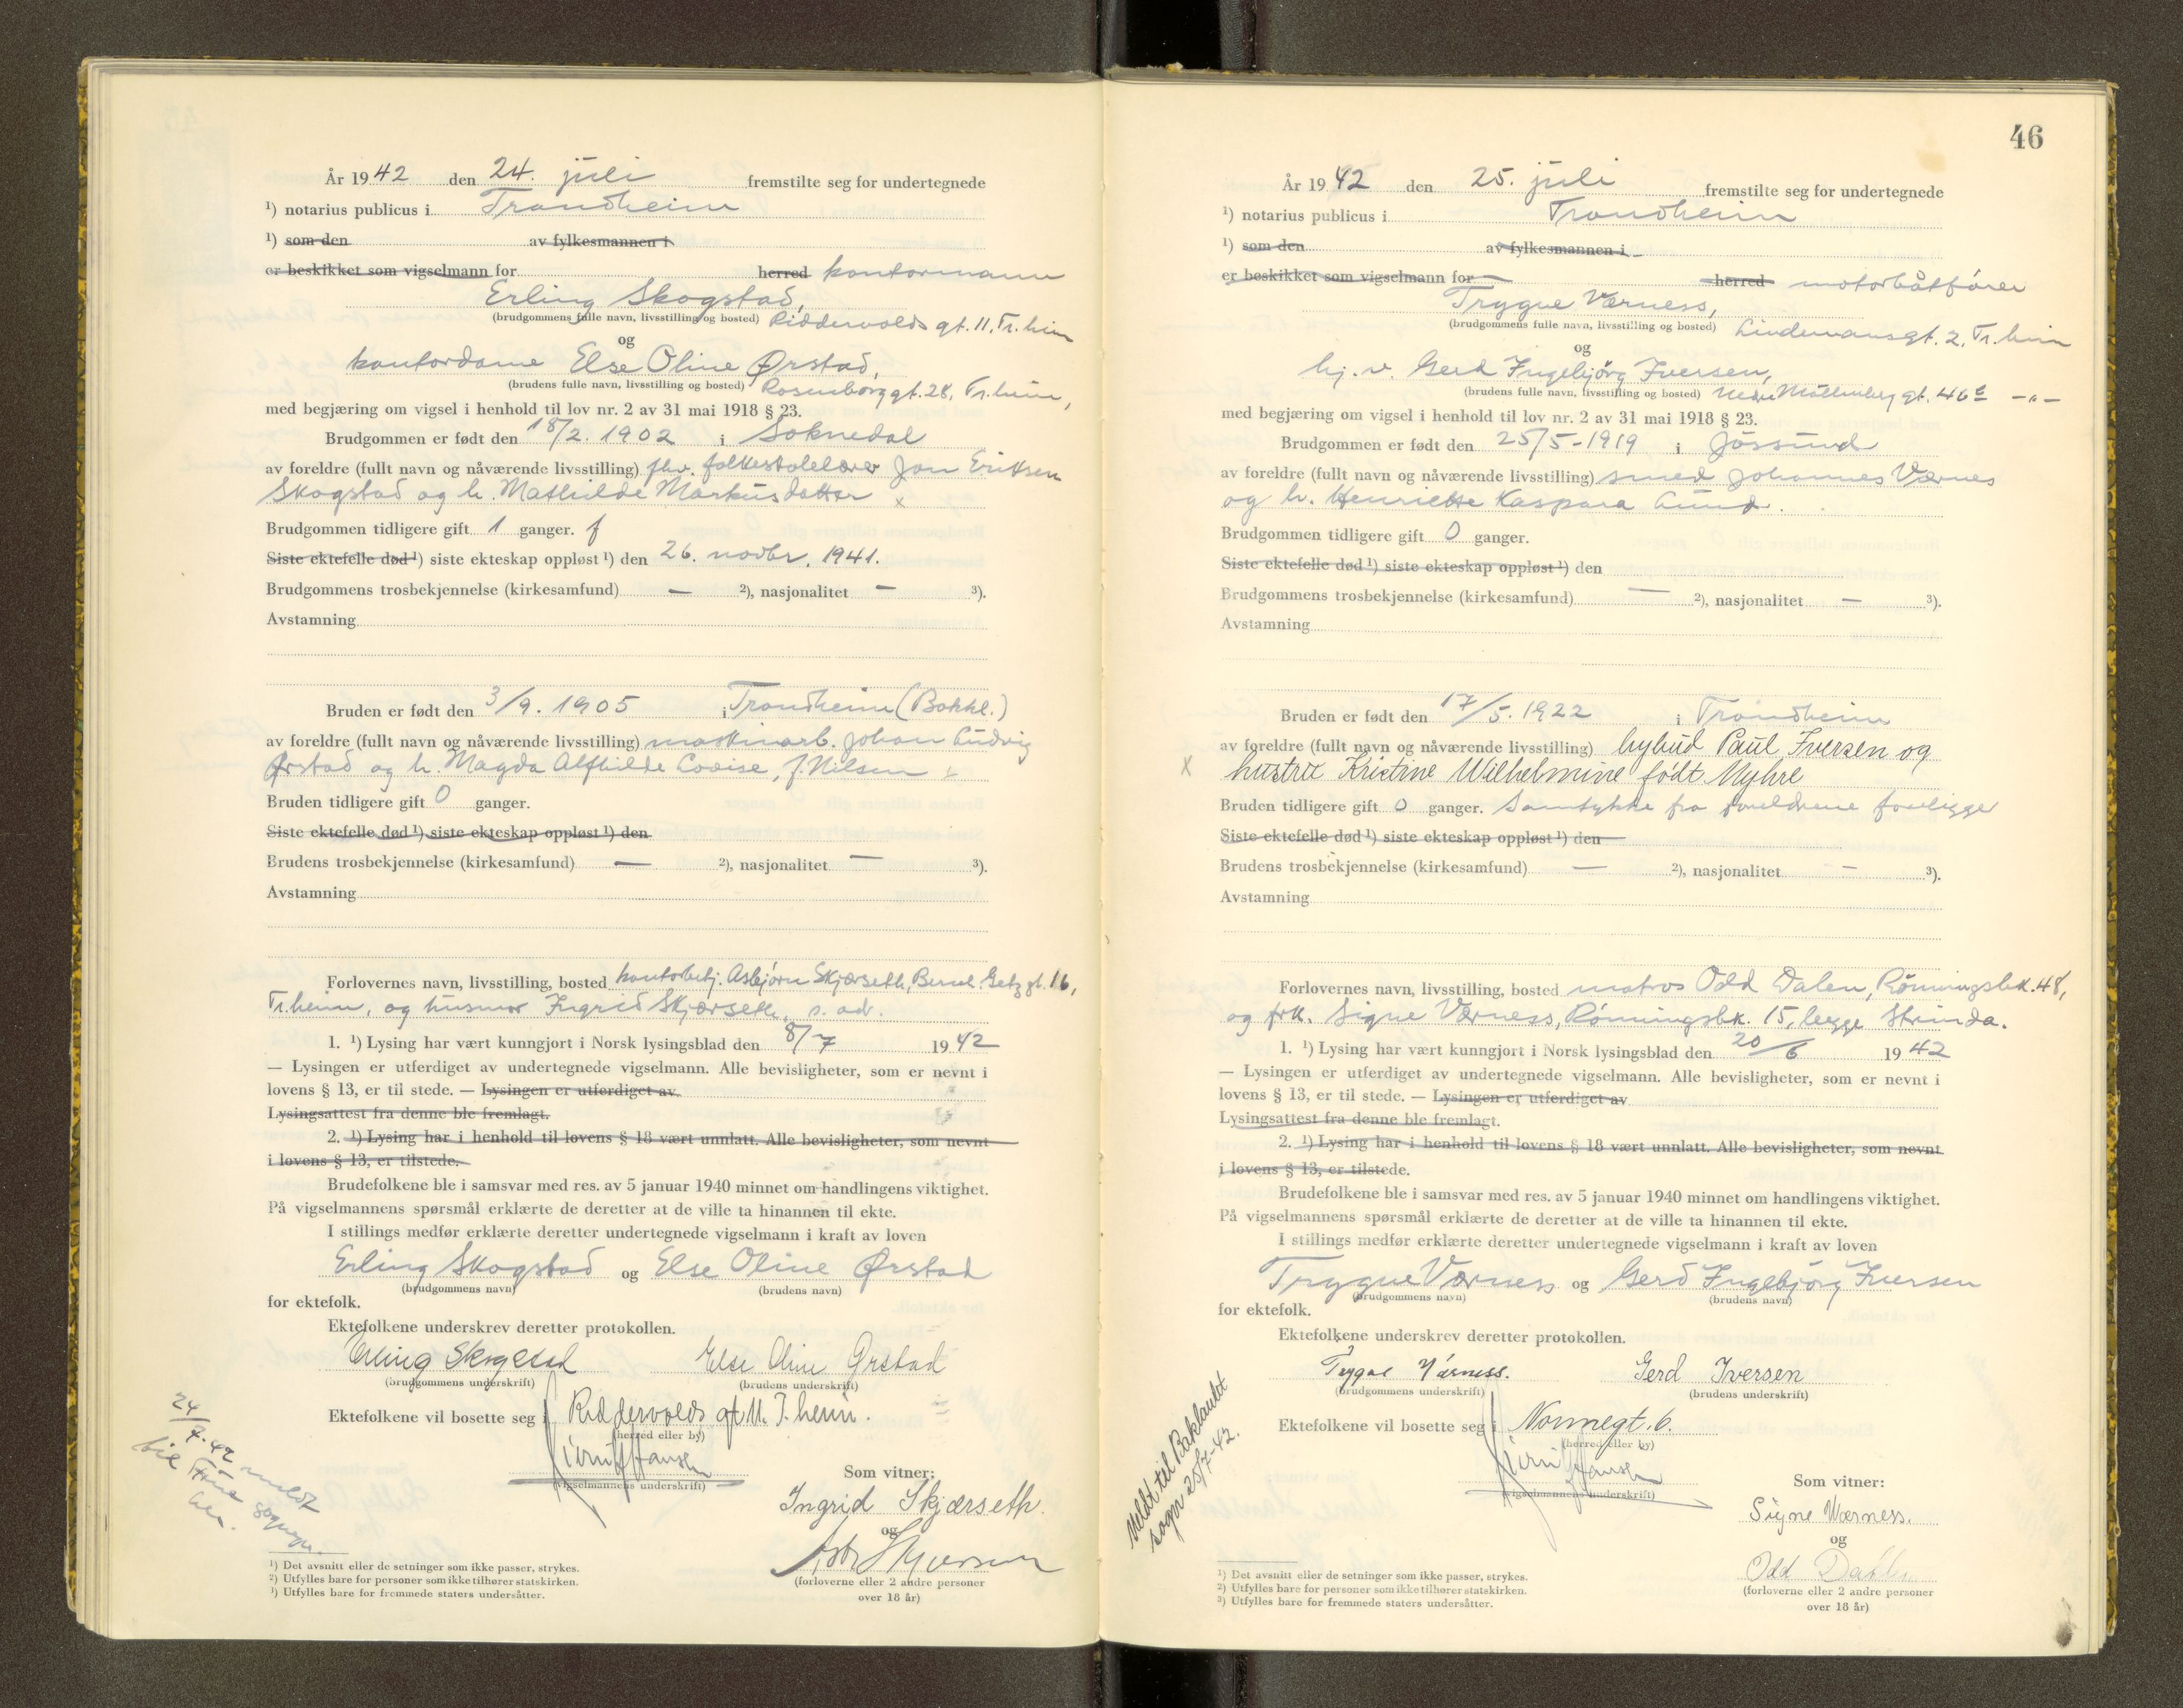 År 1942 den 24. juli fremstilte seg for undertegnede
¹) notarius publicus i Trondheim
¹) som den av fylkesmannen i
er beskikket som vigselmann for herred kontormann
Erling Skogstad,
(brudgommens fulle navn, livsstilling og bosted) Riddervolds gt. 11, Tr.heim
og
kontordame Else Oline Ørstad,
(brudens fulle navn, livsstilling og bosted) Rosenborg gt. 28, Tr.heim,
med begjæring om vigsel i henhold til lov nr. 2 av 31 mai 1918 § 23.
Brudgommen er født den 18/2. 1902 i Soknedal
av foreldre (fullt navn og nåværende livsstilling) fhv. folkeskolelærer Jon Eriksen
Skogstad og h. Mathilde Markusdatter x
Brudgommen tidligere gift 1 ganger. f
Siste ektefelle død ¹) siste ekteskap oppløst ¹) den 26. novbr. 1941.
Brudgommens trosbekjennelse (kirkesamfund) — ²), nasjonalitet — ³).
Avstamning
Bruden er født den 3/9. 1905 i Trondheim (Bakkl.)
av foreldre (fullt navn og nåværende livsstilling) maskinarb. Johan Ludvig
Ørstad og h. Magda Alfhilde Lovise, f. Nilsen x
Bruden tidligere gift 0 ganger.
Siste ektefelle død ¹) siste ekteskap oppløst ¹) den
Brudens trosbekjennelse (kirkesamfund) — ²), nasjonalitet — ³).
Avstamning
Forlovernes navn, livsstilling, bosted kontorbetj. Asbjørn Skjærseth, Bernh. Getz gt. 16,
Tr.heim, og husmor Ingrid Skjærseth, s. adr.
1. ¹) Lysing har vært kunngjort i Norsk lysingsblad den 8/7 1942
— Lysingen er utferdiget av undertegnede vigselmann. Alle bevisligheter, som er nevnt i
lovens § 13, er til stede. — Lysingen er utferdiget av
Lysingsattest fra denne ble fremlagt.
2. ¹) Lysing har i henhold til lovens § 18 vært unnlatt. Alle bevisligheter, som nevnt
i lovens § 13, er tilstede.
Brudefolkene ble i samsvar med res. av 5 januar 1940 minnet om handlingens viktighet.
På vigselmannens spørsmål erklærte de deretter at de ville ta hinannen til ekte.
I stillings medfør erklærte deretter undertegnede vigselmann i kraft av loven
Erling Skogstad og Else Oline Ørstad
(brudgommens navn) (brudens navn)
for ektefolk.
Ektefolkene underskrev deretter protokollen.
Erling Skogstad Else Oline Ørstad
(brudgommens underskrift) (brudens underskrift)
Ektefolkene vil bosette seg i Riddervolds gt 11. T.heim.
(herred eller by)
Hansen
(vigselmannens underskrift)
Som vitner:
Ingrid Skjærseth.
og
(forloverne eller 2 andre personer
over 18 år)
24/7.42 meldt
til
¹) Det avsnitt eller de setninger som ikke passer, strykes.
²) Utfylles bare for personer som ikke tilhører statskirken.
³) Utfylles bare for fremmede staters undersåtter.
46
År 1942 den 25. juli fremstilte seg for undertegnede
¹) notarius publicus i Trondheim
¹) som den av fylkesmannen i
er beskikket som vigselmann for herred motorbåtfører
Trygve Værness,
(brudgommens fulle navn, livsstilling og bosted) Lindemansgt. 2, Tr.heim
og
hj. v. Gerd Ingebjörg Iversen,
(brudens fulle navn, livsstilling og bosted) Nedre Möllenberg gt. 46 -"-
med begjæring om vigsel i henhold til lov nr. 2 av 31 mai 1918 § 23.
Brudgommen er født den 25/5-1919 i Jössund
av foreldre (fullt navn og nåværende livsstilling) smed Johannes Værnes
og h. Henriette Kaspara Lund.
Brudgommen tidligere gift 0 ganger.
Siste ektefelle død ¹) siste ekteskap oppløst ¹) den
Brudgommens trosbekjennelse (kirkesamfund) — ²), nasjonalitet — ³).
Avstamning
Bruden er født den 17/5. 1922 i Trondheim
av foreldre (fullt navn og nåværende livsstilling) bybud Paul Iversen og
x hustru Kristine Wilhelmine født Myhre
Bruden tidligere gift 0 ganger. Samtykke fra foreldrene foreligge
Siste ektefelle død ¹) siste ekteskap oppløst ¹) den
Brudens trosbekjennelse (kirkesamfund) — ²), nasjonalitet — ³).
Avstamning
Forlovernes navn, livsstilling, bosted matros Odd Dalen, Rönningsbk. 48,
og frk. Signe Værness, Rönningsbk. 15, begge Strinda.
1. ¹) Lysing har vært kunngjort i Norsk lysingsblad den 20/6 1942
— Lysingen er utferdiget av undertegnede vigselmann. Alle bevisligheter, som er nevnt i
lovens § 13, er til stede. — Lysingen er utferdiget av
Lysingsattest fra denne ble fremlagt.
2. ¹) Lysing har i henhold til lovens § 18 vært unnlatt. Alle bevisligheter, som nevnt
i lovens § 13, er tilstede.
Brudefolkene ble i samsvar med res. av 5 januar 1940 minnet om handlingens viktighet.
På vigselmannens spørsmål erklærte de deretter at de ville ta hinannen til ekte.
I stillings medfør erklærte deretter undertegnede vigselmann i kraft av loven
Trygve Værness og Gerd Ingebjörg Iversen
(brudgommens navn) (brudens navn)
for ektefolk.
Ektefolkene underskrev deretter protokollen.
Trygve Værness. Gerd Iversen
(brudgommens underskrift) (brudens underskrift)
Ektefolkene vil bosette seg i Nonnegt. 6.
(herred eller by)
Hansen
(vigselmannens underskrift)
Som vitner:
Signe Værness.
og
Odd Dahlen
(forloverne eller 2 andre personer
over 18 år)
Meldt til Baklandet
sogn 25/7-42.
¹) Det avsnitt eller de setninger som ikke passer, strykes.
²) Utfylles bare for personer som ikke tilhører statskirken.
³) Utfylles bare for fremmede staters undersåtter.